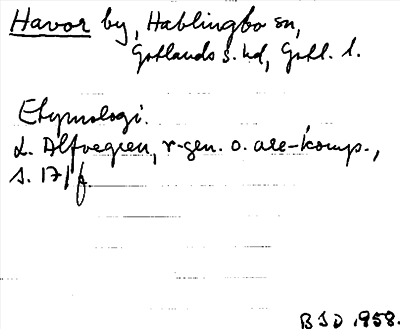 Havor by, Hablingbo sn,
Gotlands s. hd, Gotl. l.
Etymologi.
L. Alfvegren, r-gen. o. are-komp.,
s. 17 f.
BJD 1958.